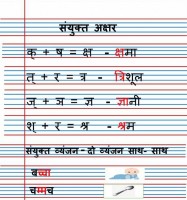 संयुक्त अक्षर
क् + ष = क्ष - क्षमा
त् + र = त्र - त्रिशूल
ज् + ञ = ज्ञ - ज्ञानी
श् + र = श्र - श्रम
संयुक्त व्यंजन - दो व्यंजन साथ- साथ
बच्चा
चम्मच